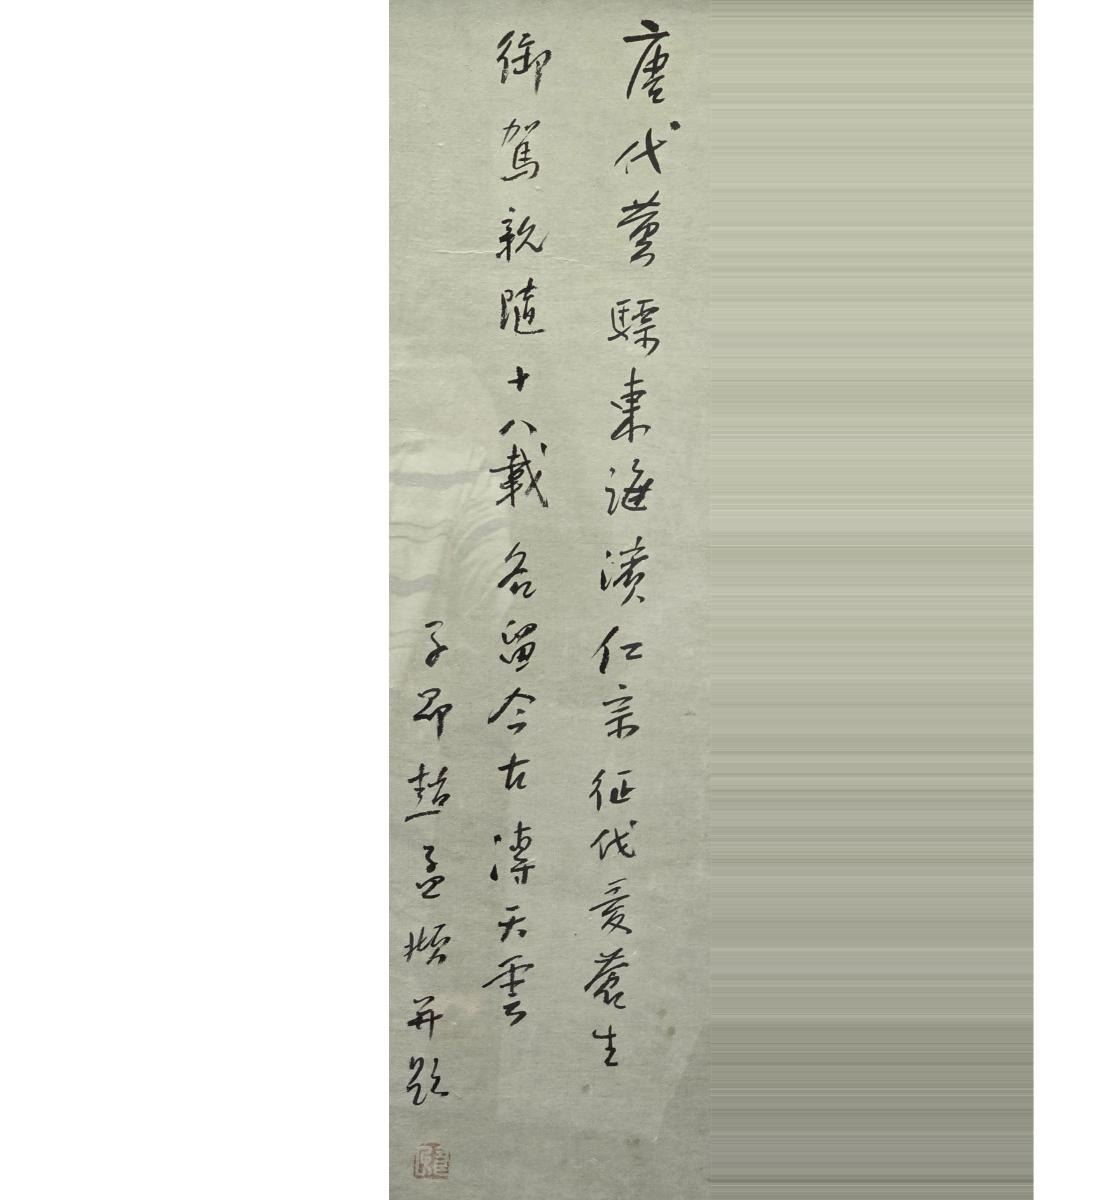 唐代黄驃東海濱仁宗征伐愛蒼生
御駕親隨十八載名留今古溥天雲
子昂趙孟頫并題